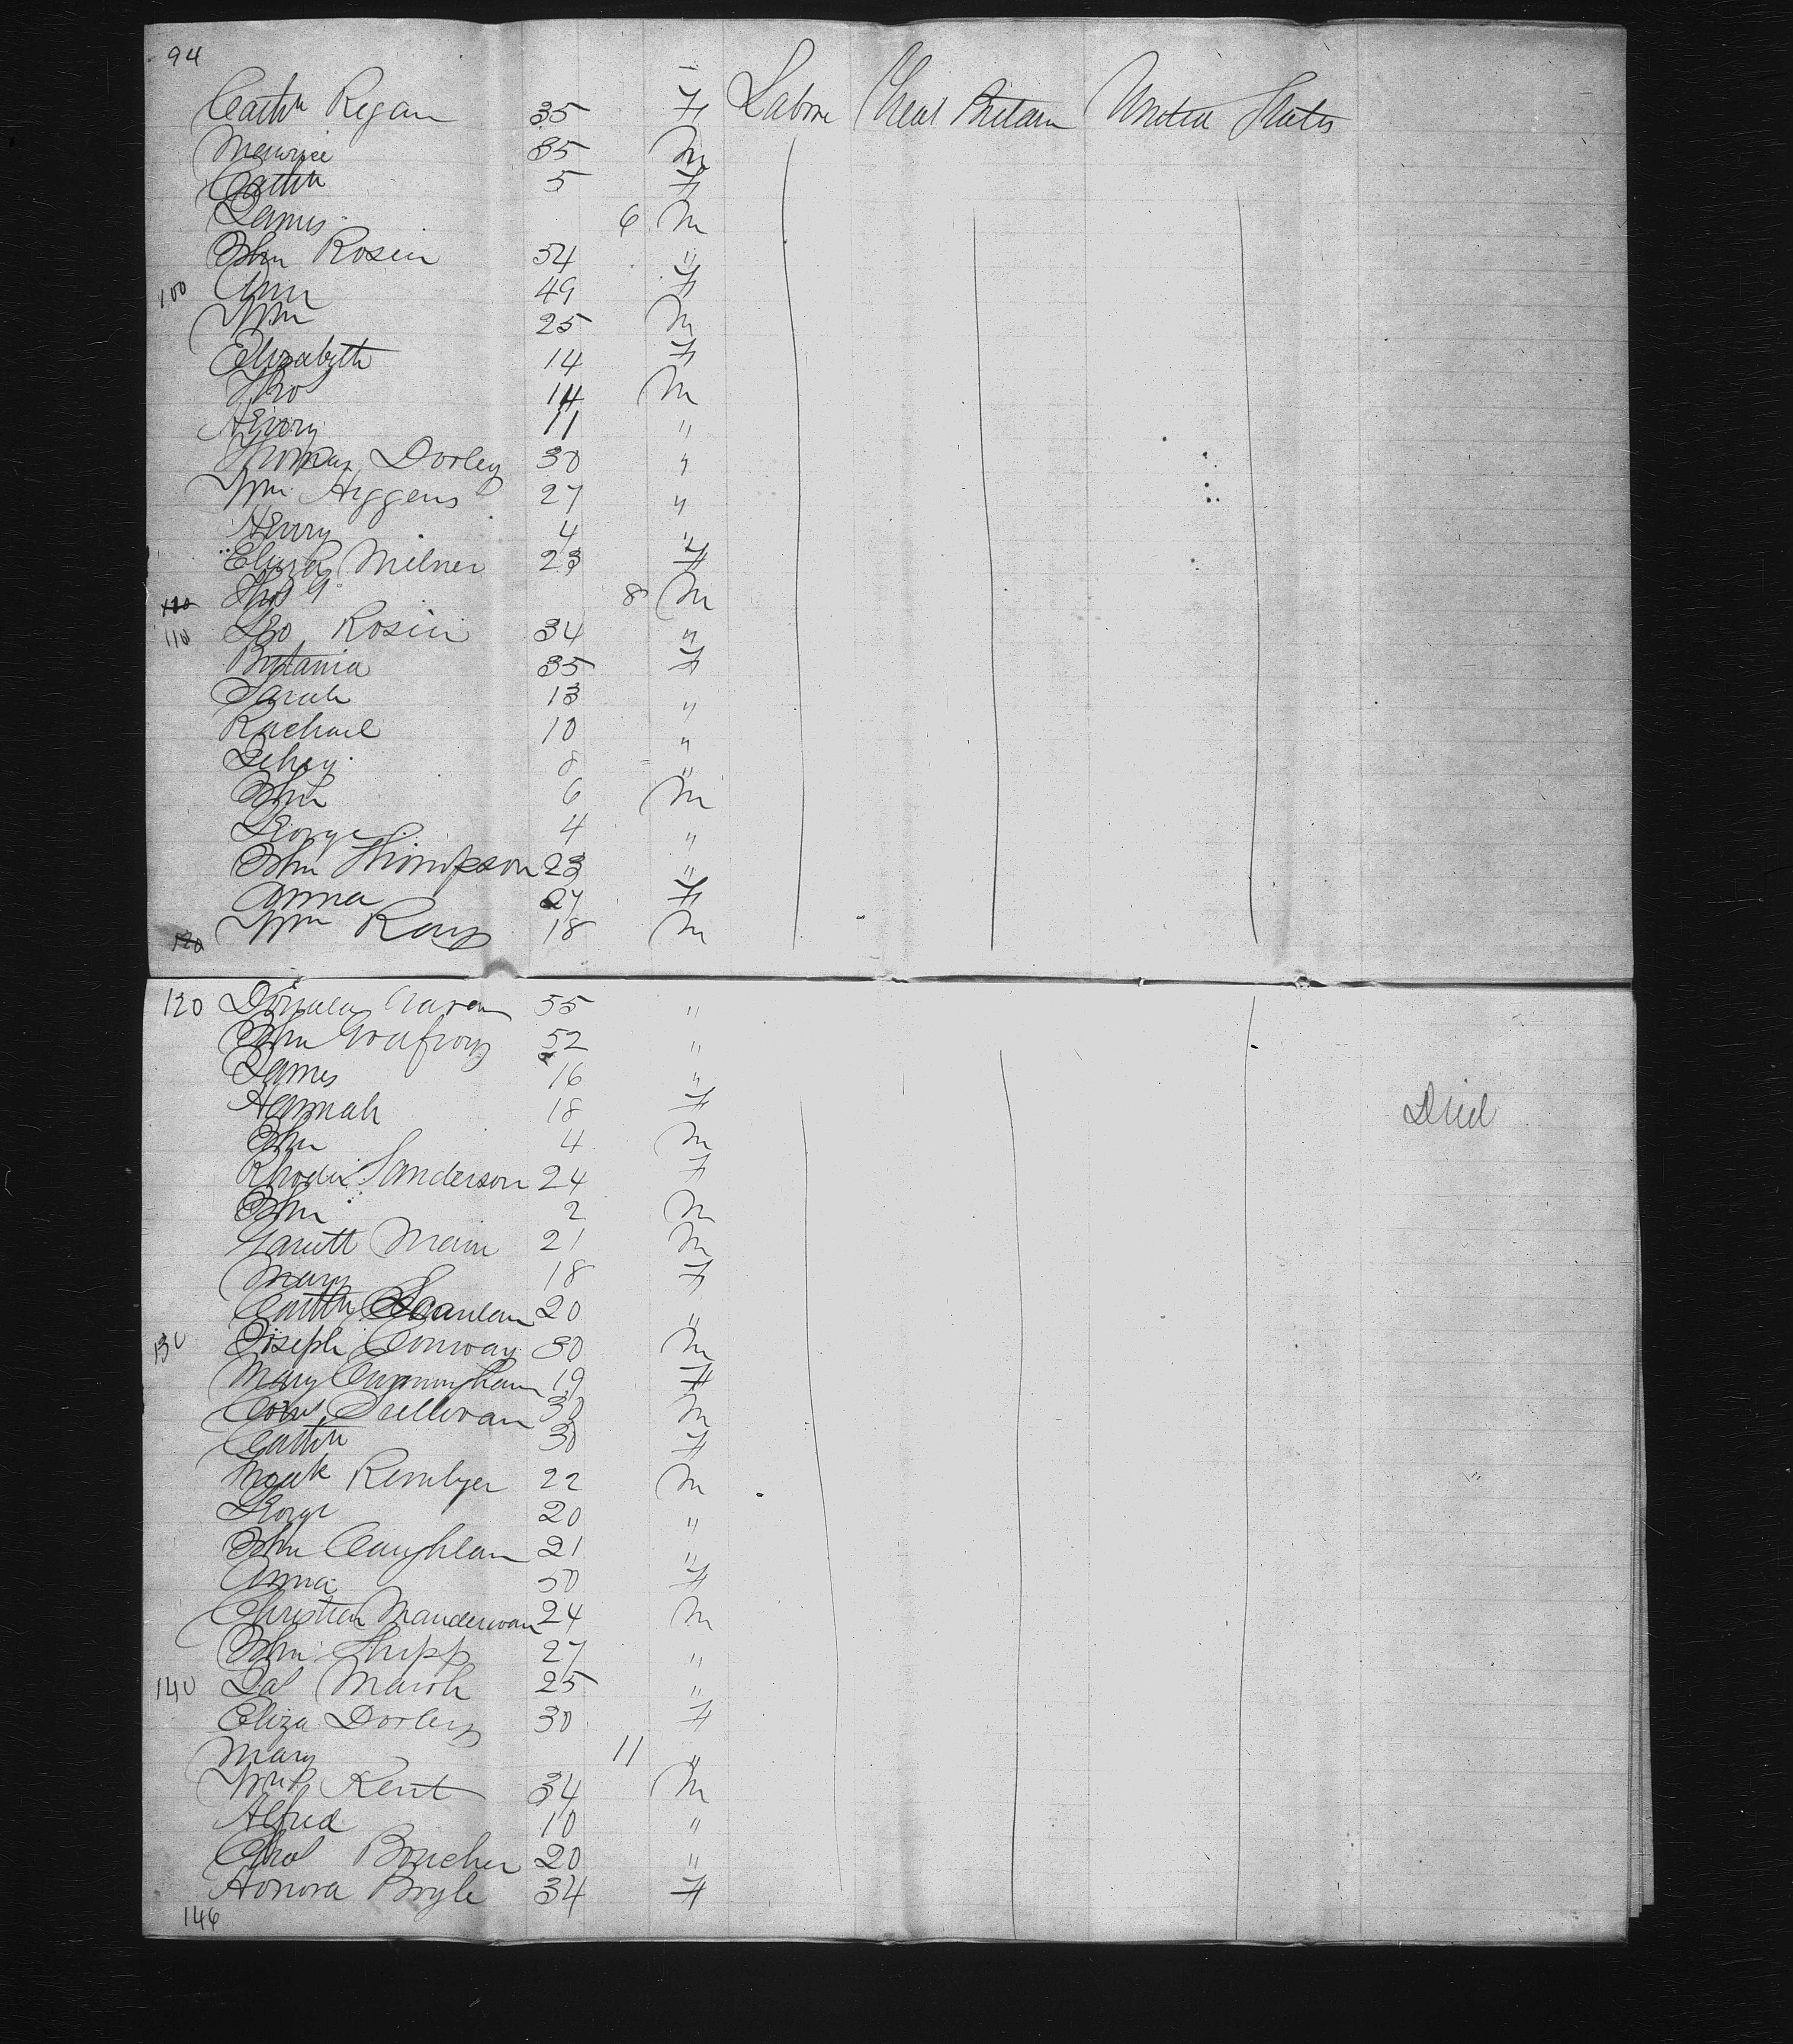 94
Cathn Regan 35 F Labore Great Britain United States
Maurice 35 M
Cathn 5 F
James 6 M
John Rosier 54 "
100 Ann 49 F
Wm 25 M
Elizabeth 14 F
Tho 14 M
Henry 11 "
Thomas Dorley 30 "
Wm Higgens 27 "
Henry 4 "
Eliza Milner 23 F
100 Thos G 8 M
110 Geo Rosier 34 "
Britania 35 F
Sarah 13
Rachael 10 "
8 "
John 6 M
George 4 "
John Thompson 23 "
Anna 27 F
120 Wm Rays 18 M
120 55 "
John 52 "
James 16 "
Hannah 18 F Died
John 4 M
Rhoda Sanderson 24 F
John 2 M
Garrett 21 M
Mary 18 F
Cathn Scanlan 20 "
130 Joseph Conway 30 M
Mary Cunningham 19 F
Corns Sullivan 30 M
Cathn 30 F
Mark 22 M
George 20 "
John Caughlan 21 "
Anna 50 F
Christian 24 M
John Shipp 27 "
140 Jas Marsh 25 "
Eliza Dorley 30 F
Mary 11 "
Wm Kent 34 M
Alfred 10 "
Chas Boucher 20 "
Honora Boyle 34 F
146